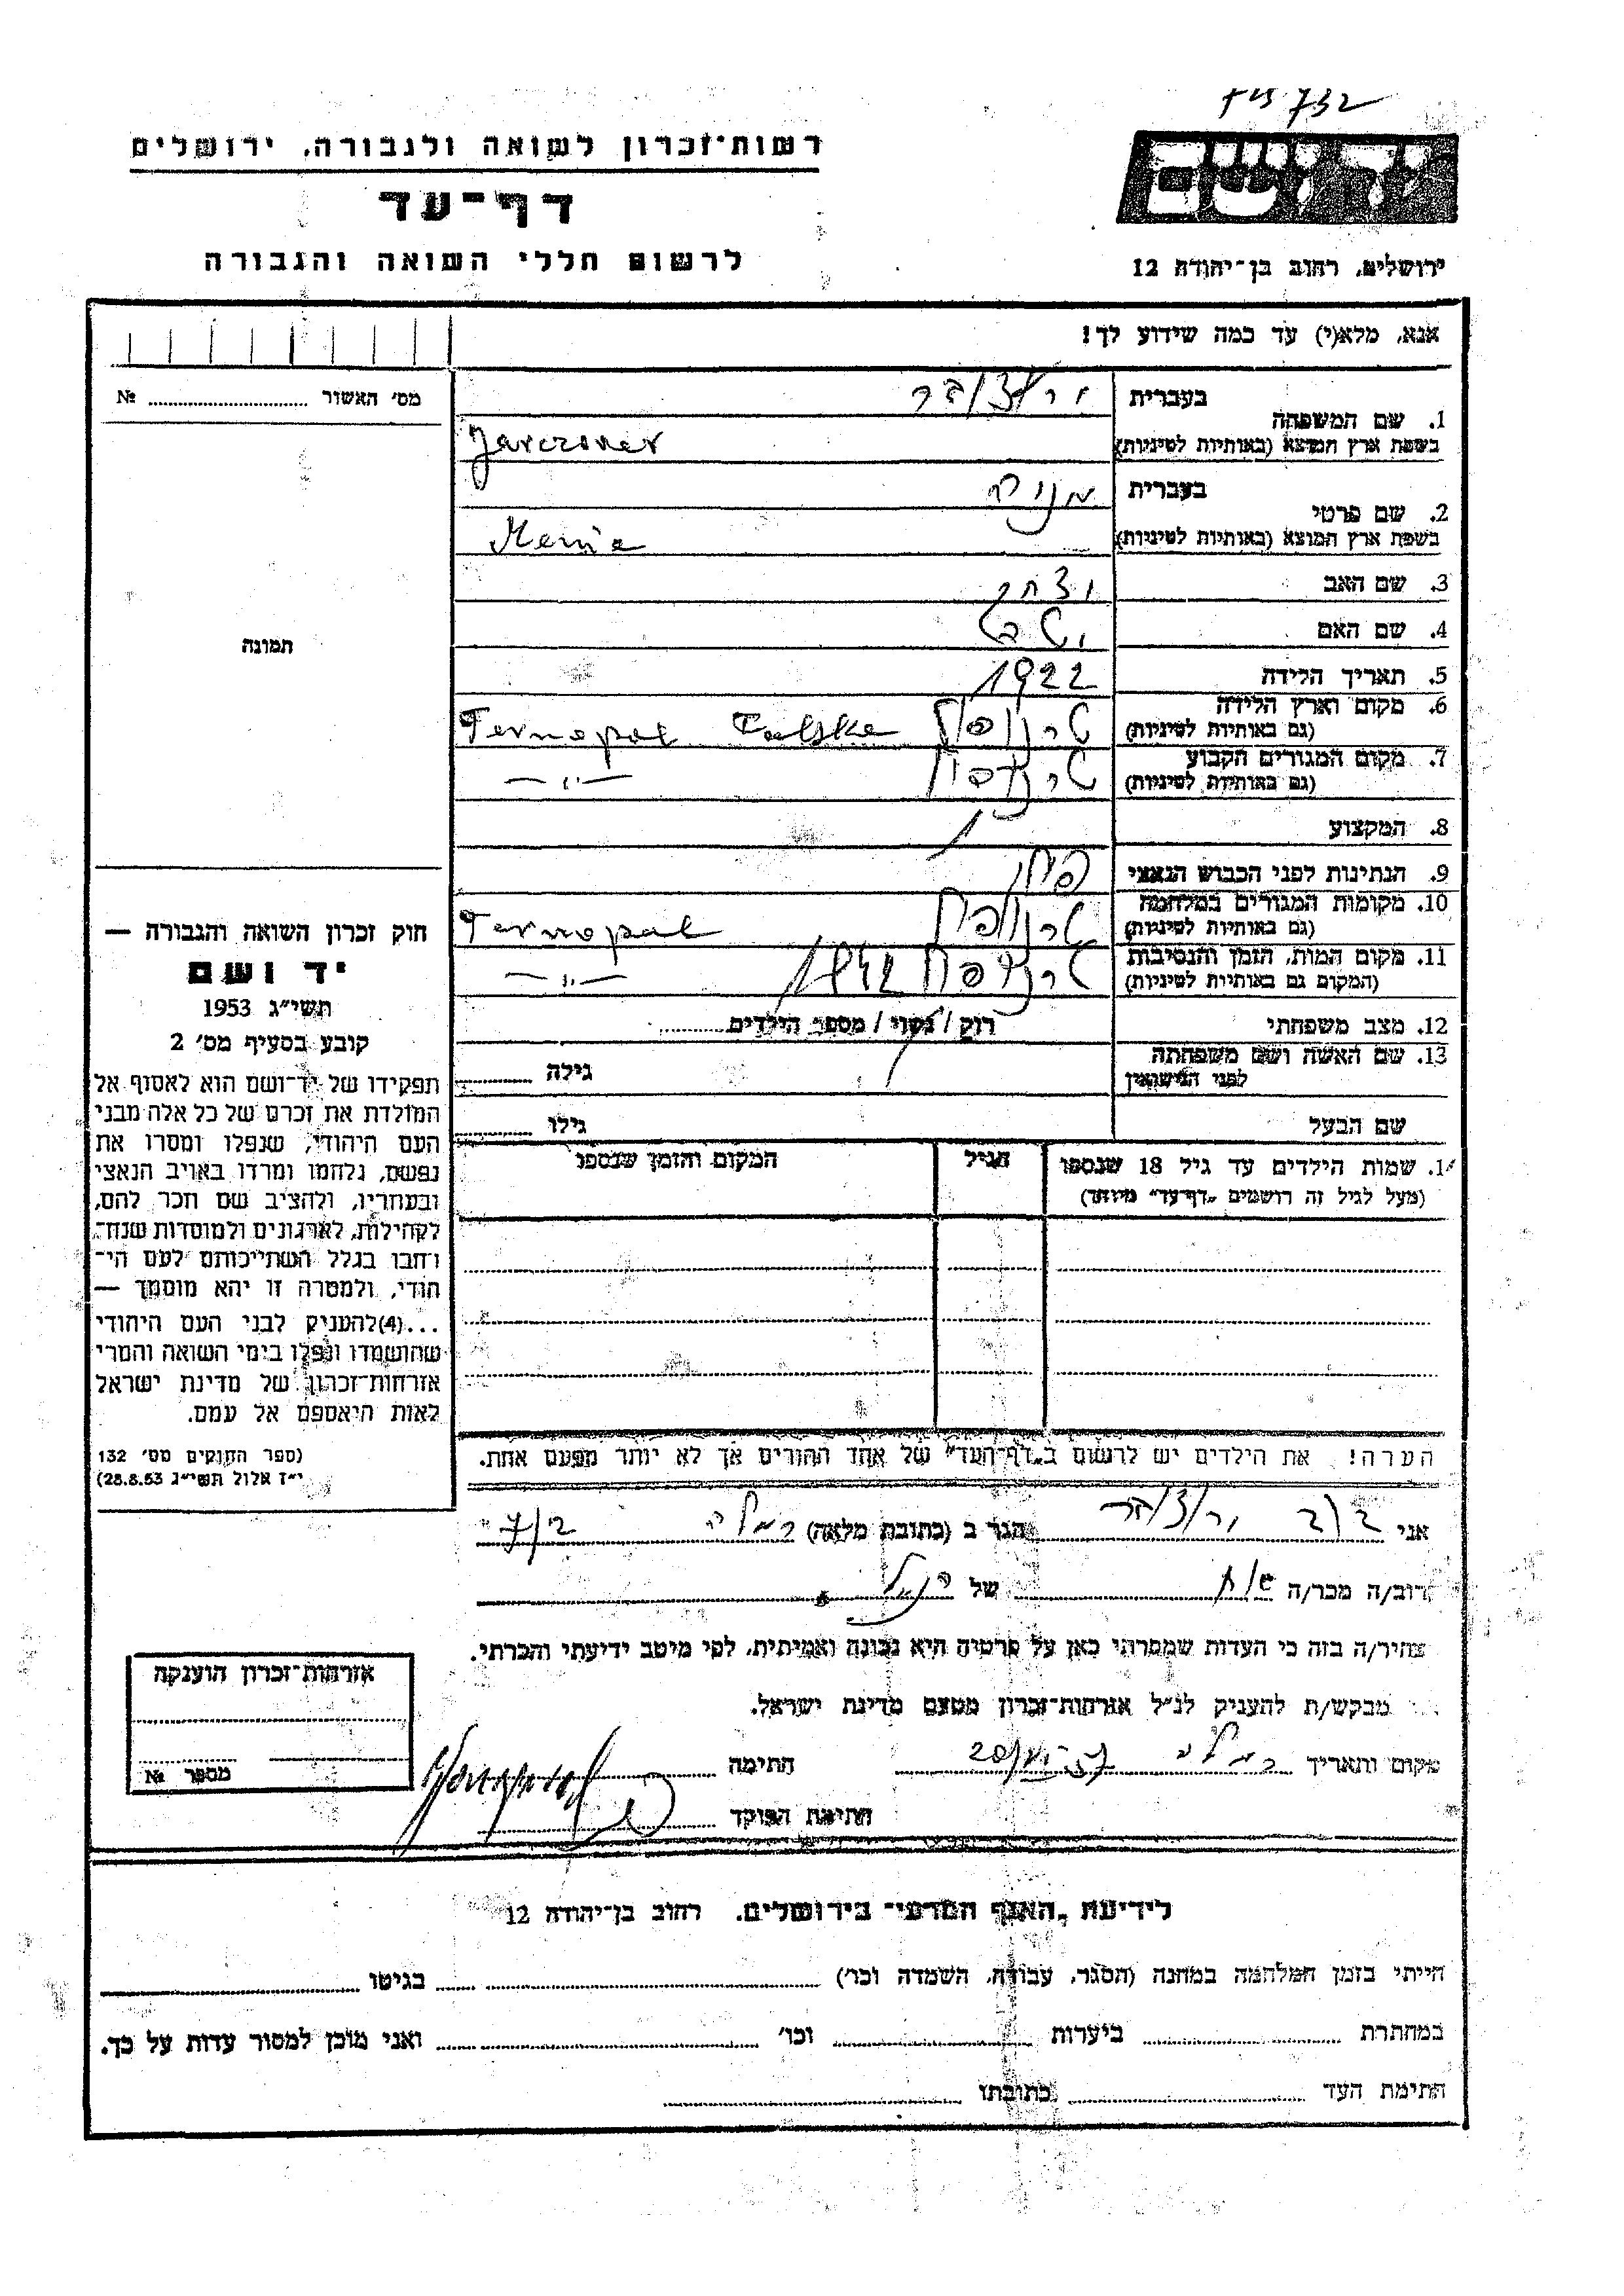 732
רשות־זכרון לשואה ולגבורה, ירושלים
יד ושם
דף־עד
לרשום חללי השואה והגבורה
ירושלים, רחוב בן־יהודה 12
אנא, מלא(י) עד כמה שידוע לך!
מס׳ האשור № ........
1. שם המשפחה
בעברית
בשפת ארץ המוצא (באותיות לטיניות)
Jarczower
2. שם פרטי
בעברית מניה
בשפת ארץ המוצא (באותיות לטיניות) Menia
3. שם האב יצחק
4. שם האם
5. תאריך הלידה 1922
6. מקום וארץ הלידה
(גם באותיות לטיניות) טרנופול Polska Ternopol
7. מקום המגורים הקבוע
(גם באותיות לטיניות) טרנופול —〃—
8. המקצוע
9. הנתינות לפני הכבוש הנאצי פולני
10. מקומות המגורים במלחמה
(גם באותיות לטיניות) טרנופול Ternopol
11. מקום המות, הזמן והנסיבות
(המקום גם באותיות לטיניות) טרנופול 1942 —〃—
12. מצב משפחתי רוק / נשוי / מספר הילדים........
13. שם האשה ושם משפחתה
לפני הנישואין גילה ........
שם הבעל גילו ........
תמונה
חוק זכרון השואה והגבורה —
יד ושם
תשי״ג 1953
קובע בסעיף מס׳ 2
תפקידו של יד־ושם הוא לאסוף אל
המולדת את זכרם של כל אלה מבני
העם היהודי, שנפלו ומסרו את
נפשם, נלחמו ומרדו באויב הנאצי
ובעוזריו, ולהציב שם וזכר להם,
לקהילות, לארגונים ולמוסדות שנח־
רבו בגלל השתייכותם לעם הי־
הודי, ולמטרה זו יהא מוסמך —
...(4)להעניק לבני העם היהודי
שהושמדו ונפלו בימי השואה והמרי
אזרחות־זכרון של מדינת ישראל
לאות היאספם אל עמם.
(ספר החוקים מס׳ 132
י״ז אלול תשי״ג 28.8.53)
שמות הילדים עד גיל 18 שנספו
(מעל לגיל זה רושמים „דף־עד״ מיוחד)
הגיל
המקום והזמן שנספו
הערה! את הילדים יש לרשום ב„דף־העד״ של אחד ההורים אך לא יותר מפעם אחת.
אני הגר ב (כתובת מלאה) רמלה
קרוב/ה מכר/ה של
מצהיר/ה בזה כי העדות שמסרתי כאן על פרטיה היא נכונה ואמיתית, לפי מיטב ידיעתי והכרתי.
מבקש/ת להעניק לנ״ל אזרחות־זכרון מטעם מדינת ישראל.
מקום ותאריך רמלה חתימה
חתימת הפוקד
אזרחות־זכרון הוענקה
מספר №
לידיעת „האגף המדעי״ בירושלים, רחוב בן־יהודה 12
הייתי בזמן המלחמה במחנה (הסגר, עבודה, השמדה וכו׳) ........ בגיטו ........
במחתרת ........ ביערות ........ וכו׳ ........ ואני מוכן למסור עדות על כך.
חתימת העד ........ כתובתו ........